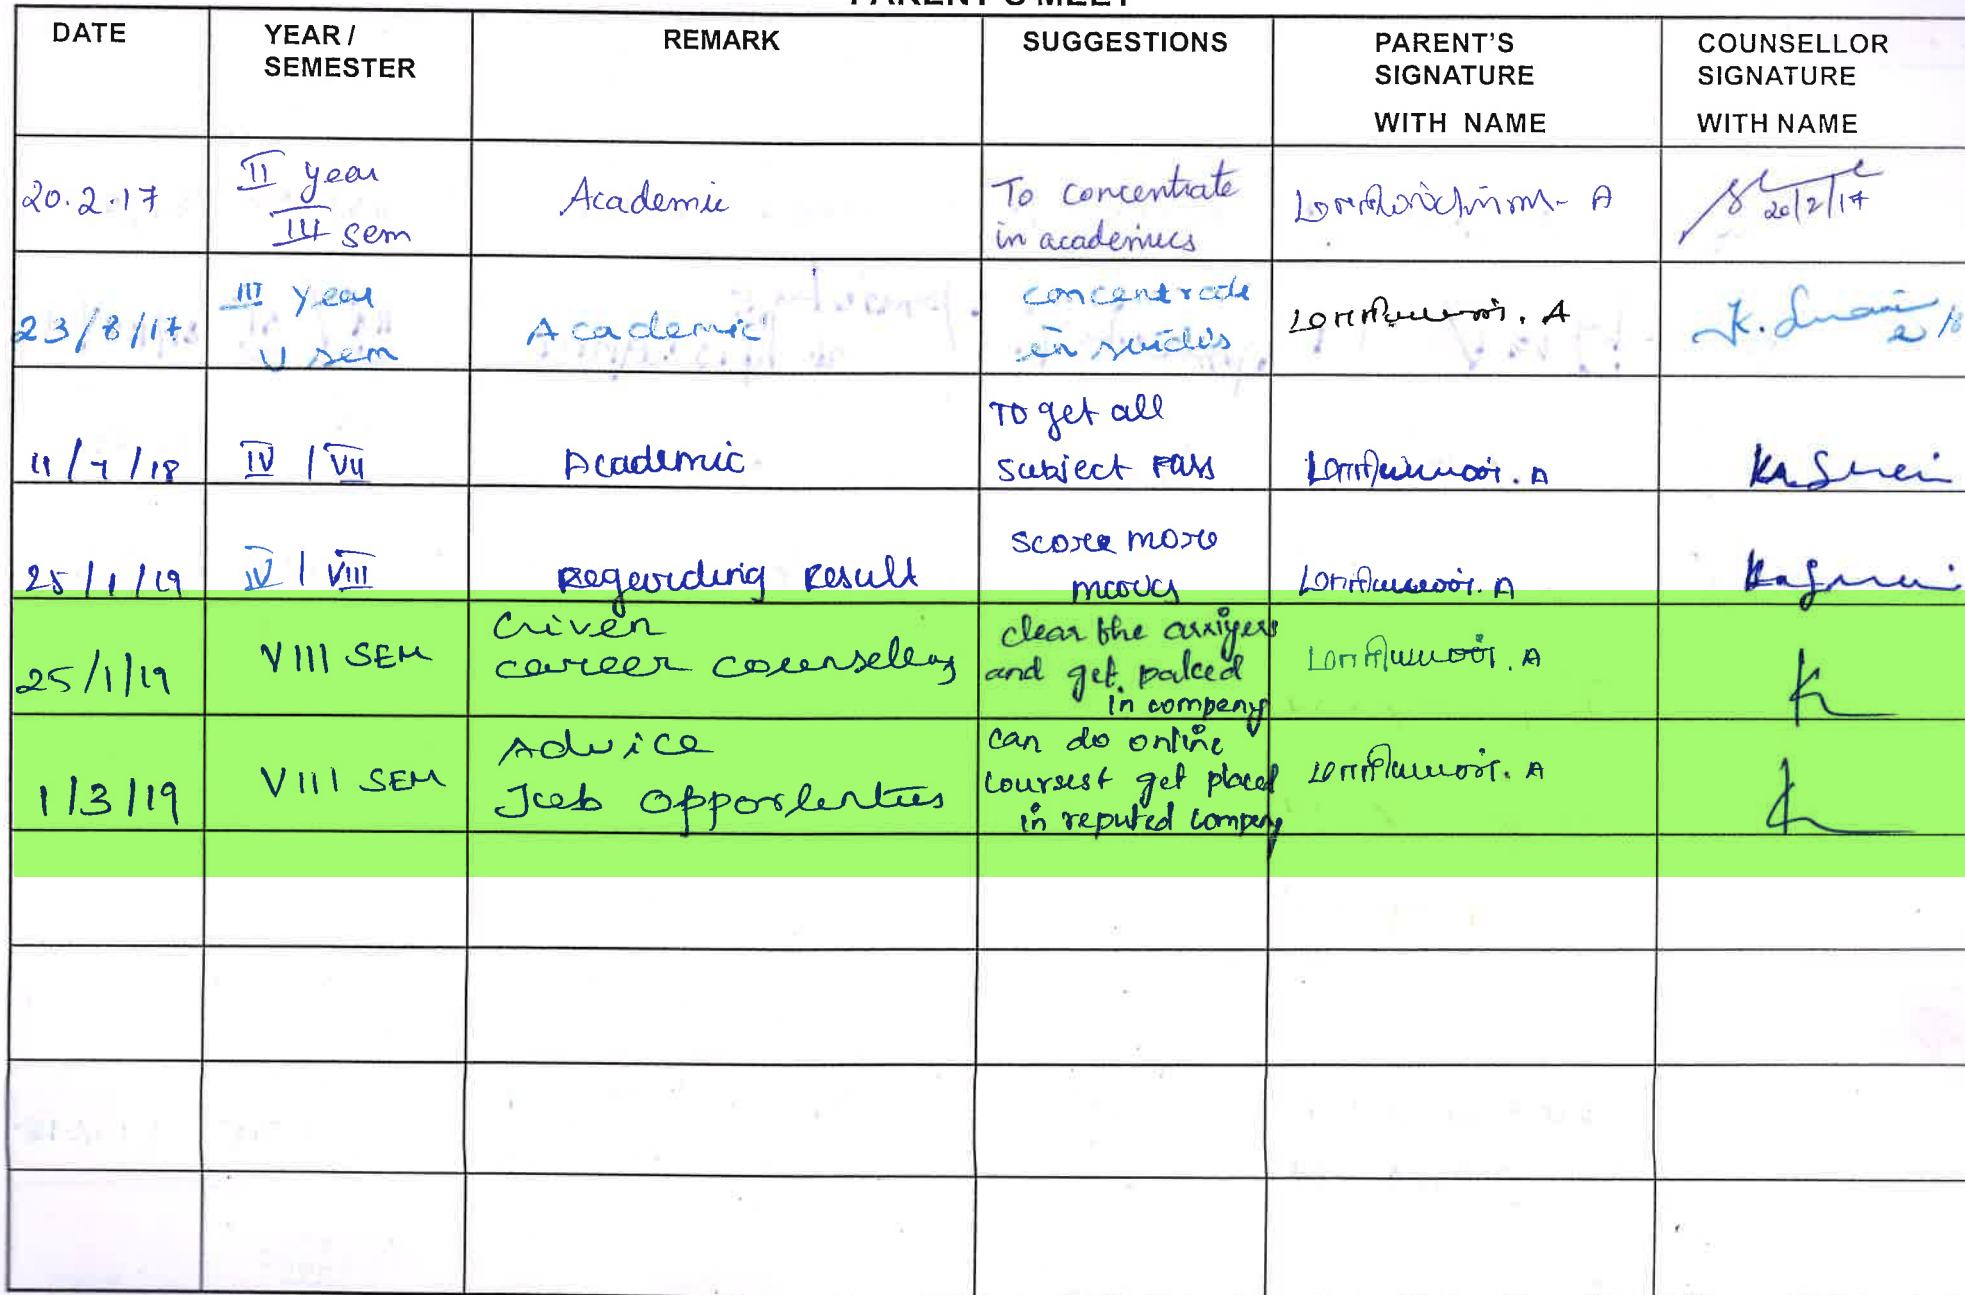 PARENT'S MEET
DATE
YEAR /
SEMESTER
REMARK
SUGGESTIONS
PARENT'S
SIGNATURE
WITH NAME
COUNSELLOR
SIGNATURE
WITH NAME
20.2.17
II year
III sem
Academic
To concentrate
in academics
A
20/2/17
23/8/17
III Year
V sem
Academic
concentrate
in
. A
K.
11/7/18
IV / VII
Academic
To get all
Subject Pass
. A
25/1/19
IV / VIII
Regarding Result
score more
. A
25/1/19
VIII SEM
Given
career counselling
clear the
and get palced
in company
. A
1/3/19
VIII SEM
Advice
Job
can do online
get placed
in reputed company
. A